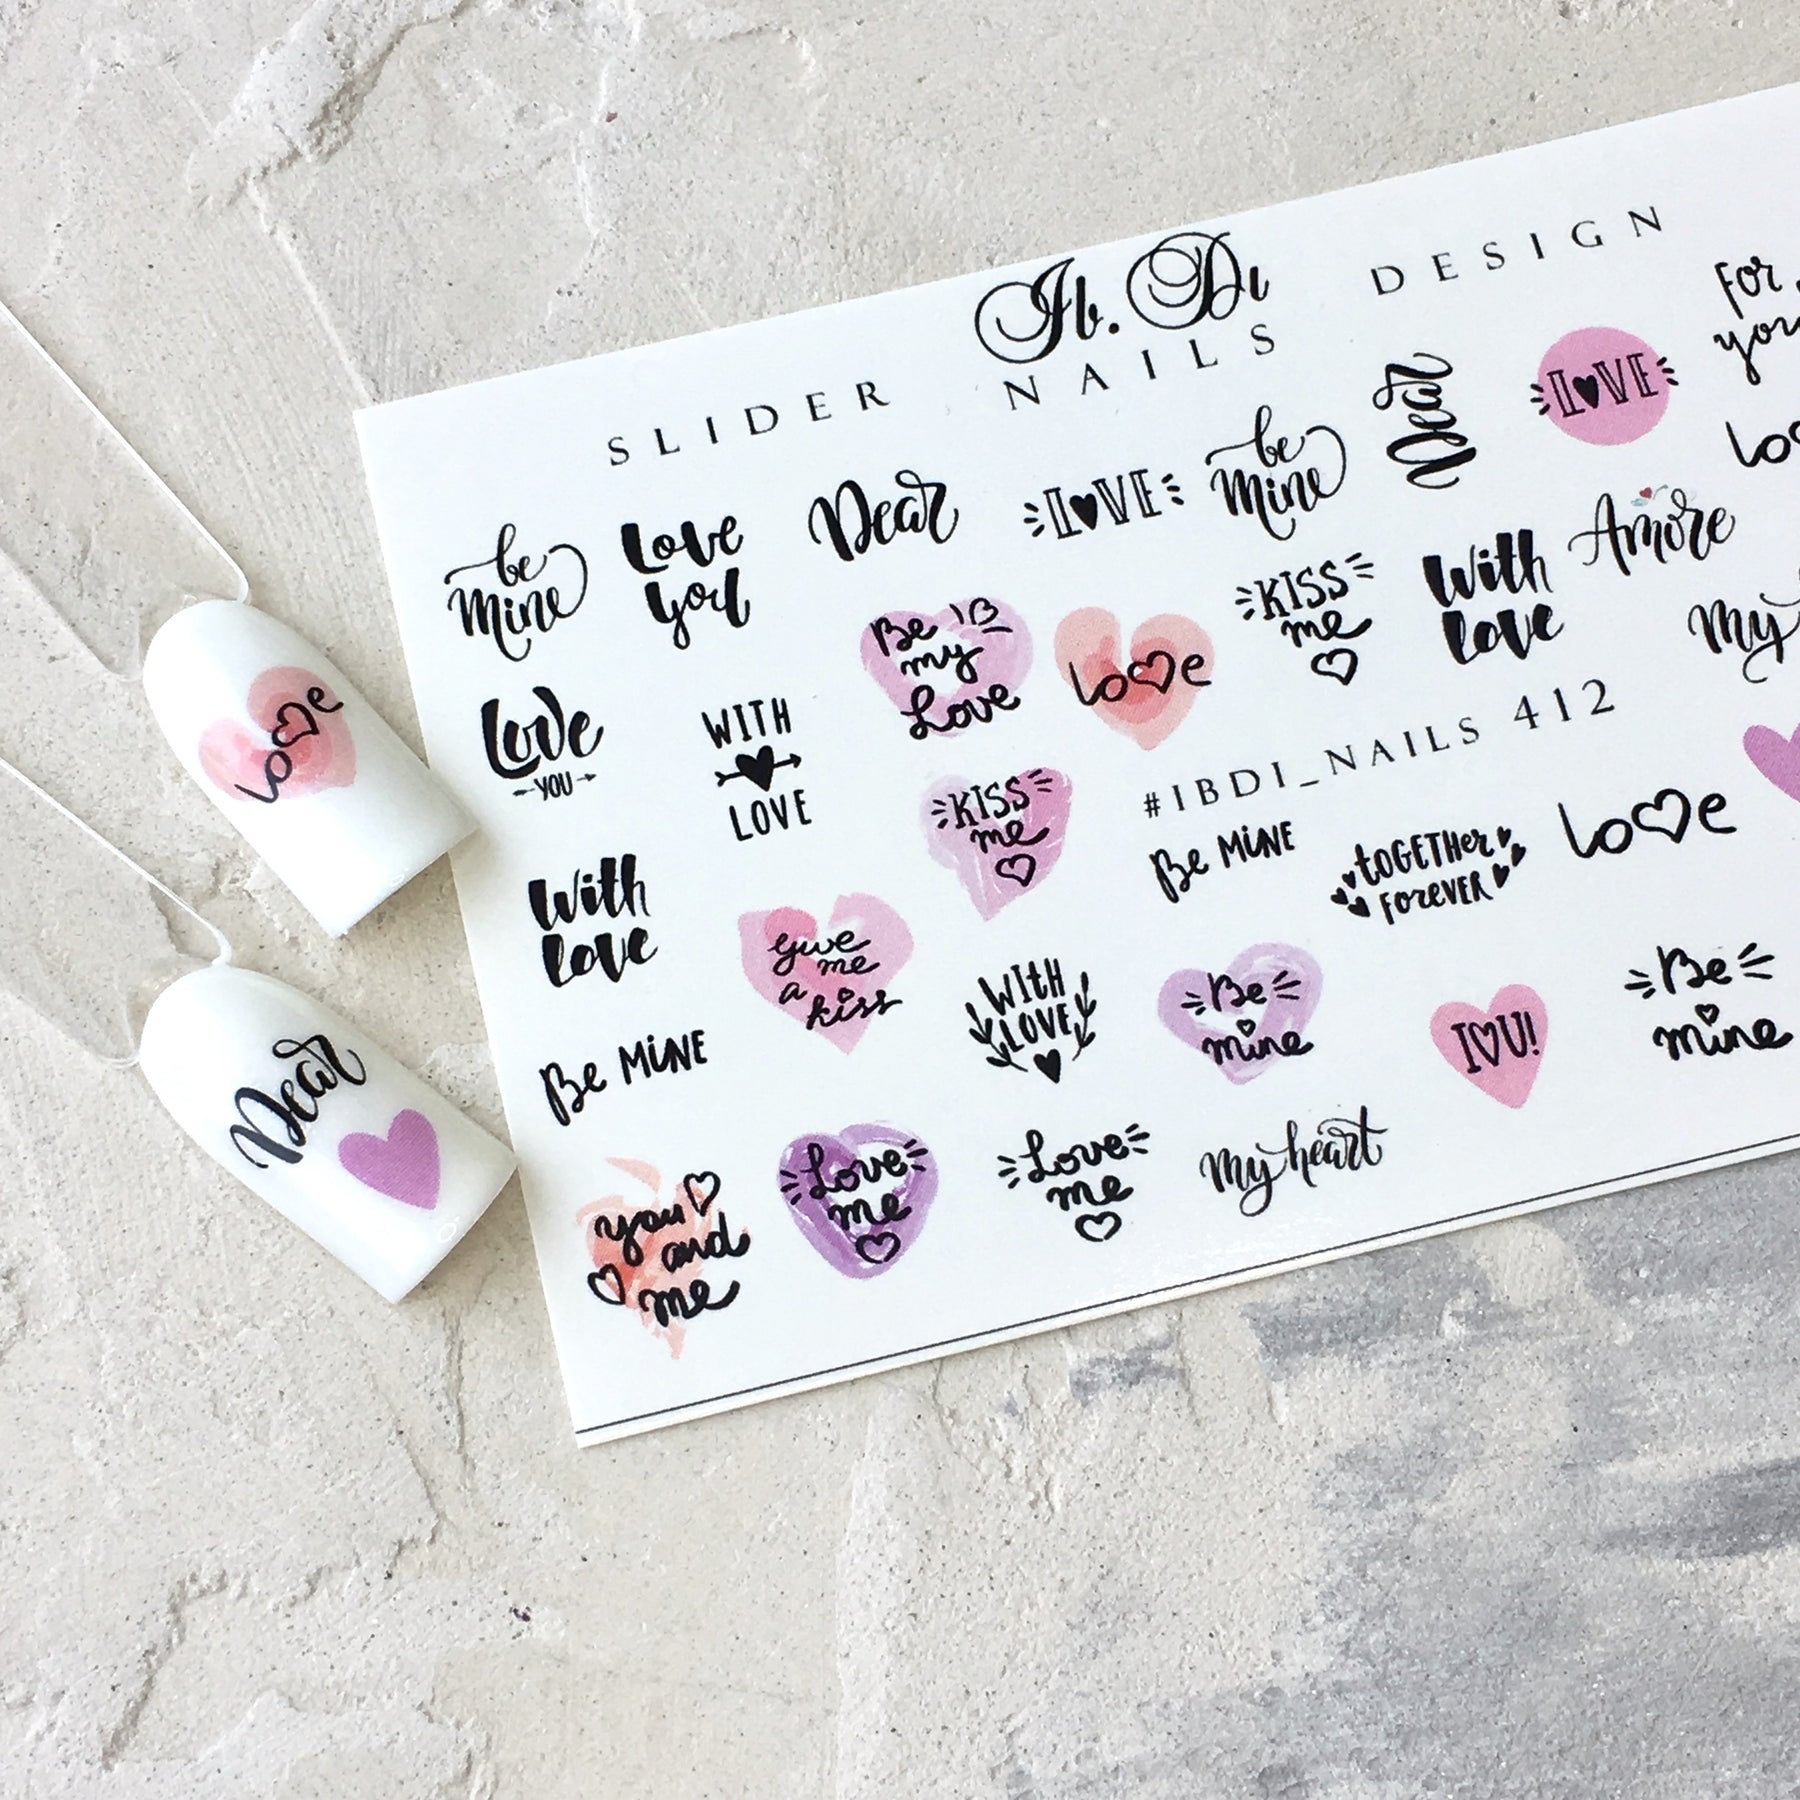 Ib. Di
SLIDER NAILS DESIGN
be
mine
Love
you
Dear
LOVE
be
mine
Dear
LOVE
For
you
Love
YOU
WITH
LOVE
Be
my
Love
love
KISS
me
With
Love
Amore
My
With
Love
KISS
me
#IBDI_NAILS 412
Be MiNE
toGETHer
ForeVER
love
Be MiNE
give
me
a
kiss
WItH
LOVE
Be
mine
I U!
Be
mine
you
and
me
Love
me
Love
me
My heart
love
Dear